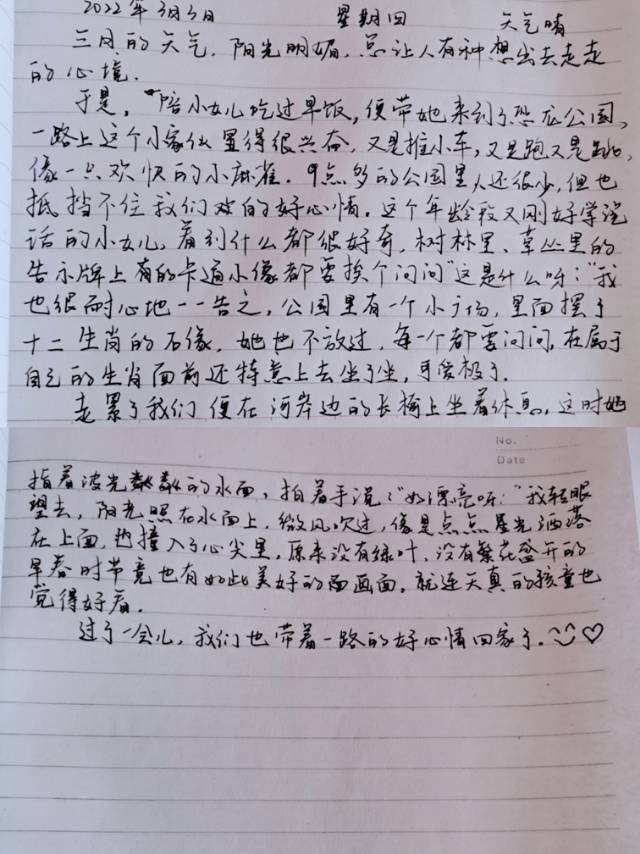 2022年3月3日 星期四 天气晴
三月的天气，阳光明媚，总让人有种想出去走走
的心境.
于是，陪小女儿吃过早饭，便带她来到了恐龙公园，
一路上这个小家伙显得很兴奋，又是推小车，又是跑又是跳，
像一只欢快的小麻雀.9点多的公园里人还很少，但也
抵挡不住我们欢的好心情。这个年龄段又刚好学说
话的小女儿，看到什么都很好奇，树林里、草丛里的
告示牌上有的卡通小像都要挨个问问"这是什么呀："我
也很耐心地一一告之，公园里有一个小广场，里面摆了
十二生肖的石像，她也不放过，每一个都要问问，在属于
自己的生肖面前还特意上去坐了坐，可爱极了.
走累了我们便在河岸边的长椅上坐着休息，这时她
No.
Date
指着波光粼粼的水面，拍着手说："好漂亮呀："我转眼
望去，阳光照在水面上，微风吹过，像是点点星光洒落
在上面，也撞入了心尖里，原来没有绿叶、没有繁花盛开的
早春时节竟也有如此美好的画面，就连天真的孩童也
觉得好看.
过了一会儿，我们也带着一路的好心情回家了.